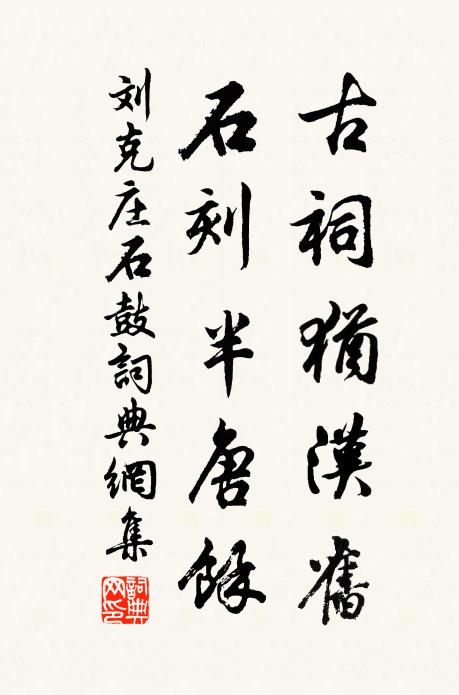 古祠猶漢舊
石刻半唐餘
刘克庄石鼓詞典網集
詞典网印